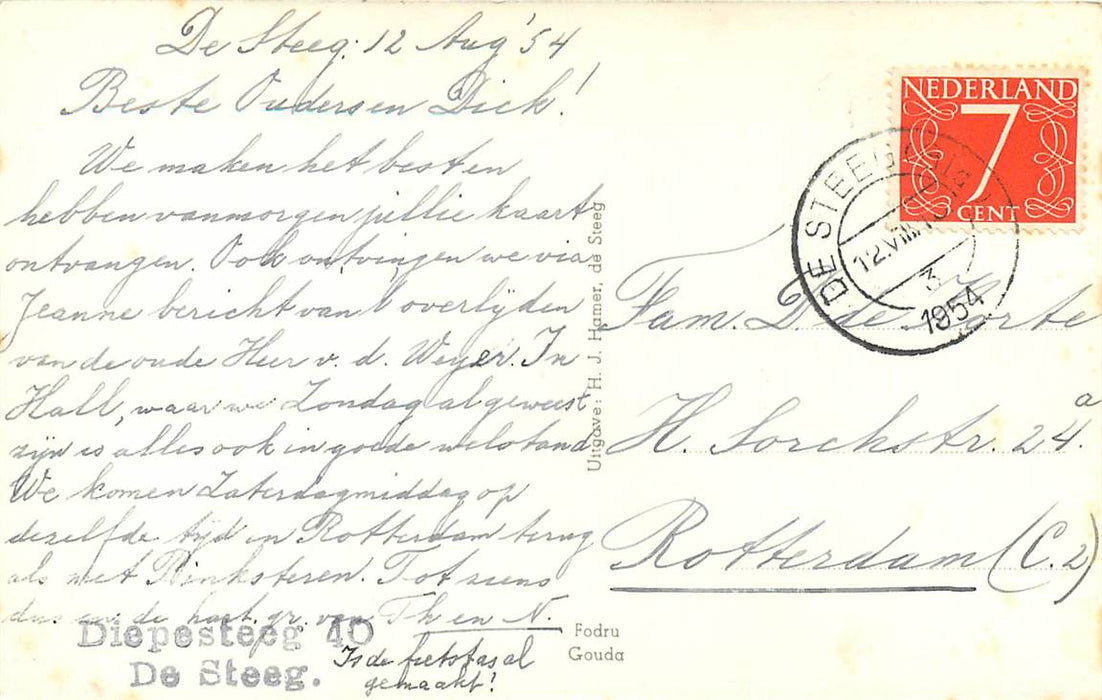 De Steeg: 12 Aug '54
Beste Ouders en Dick!
We maken het best en
hebben vanmorgen jullie kaart
ontvangen. Ook ontvingen we via
Jeanne bericht van 't overlijden
van de oude Heer v. d. Weyer. In
Hall, waar we Zondag al geweest
zijn is alles ook in goede welstand
We komen Zaterdagmiddag op
dezelfde tijd in Rotterdam terug
als met Pinksteren. Tot ziens
dus en de hart. gr. van Th en N.
Is de fietstas al
gemaakt!
Diepesteeg 40
De Steeg.
Uitgave: H. J. Hamer, de Steeg
Fodru
Gouda
NEDERLAND
7
CENT
DE STEEG
12.VIII.
3
1954
Fam. D. de Korte
H. Sorchstr. 24a
Rotterdam (C.2)